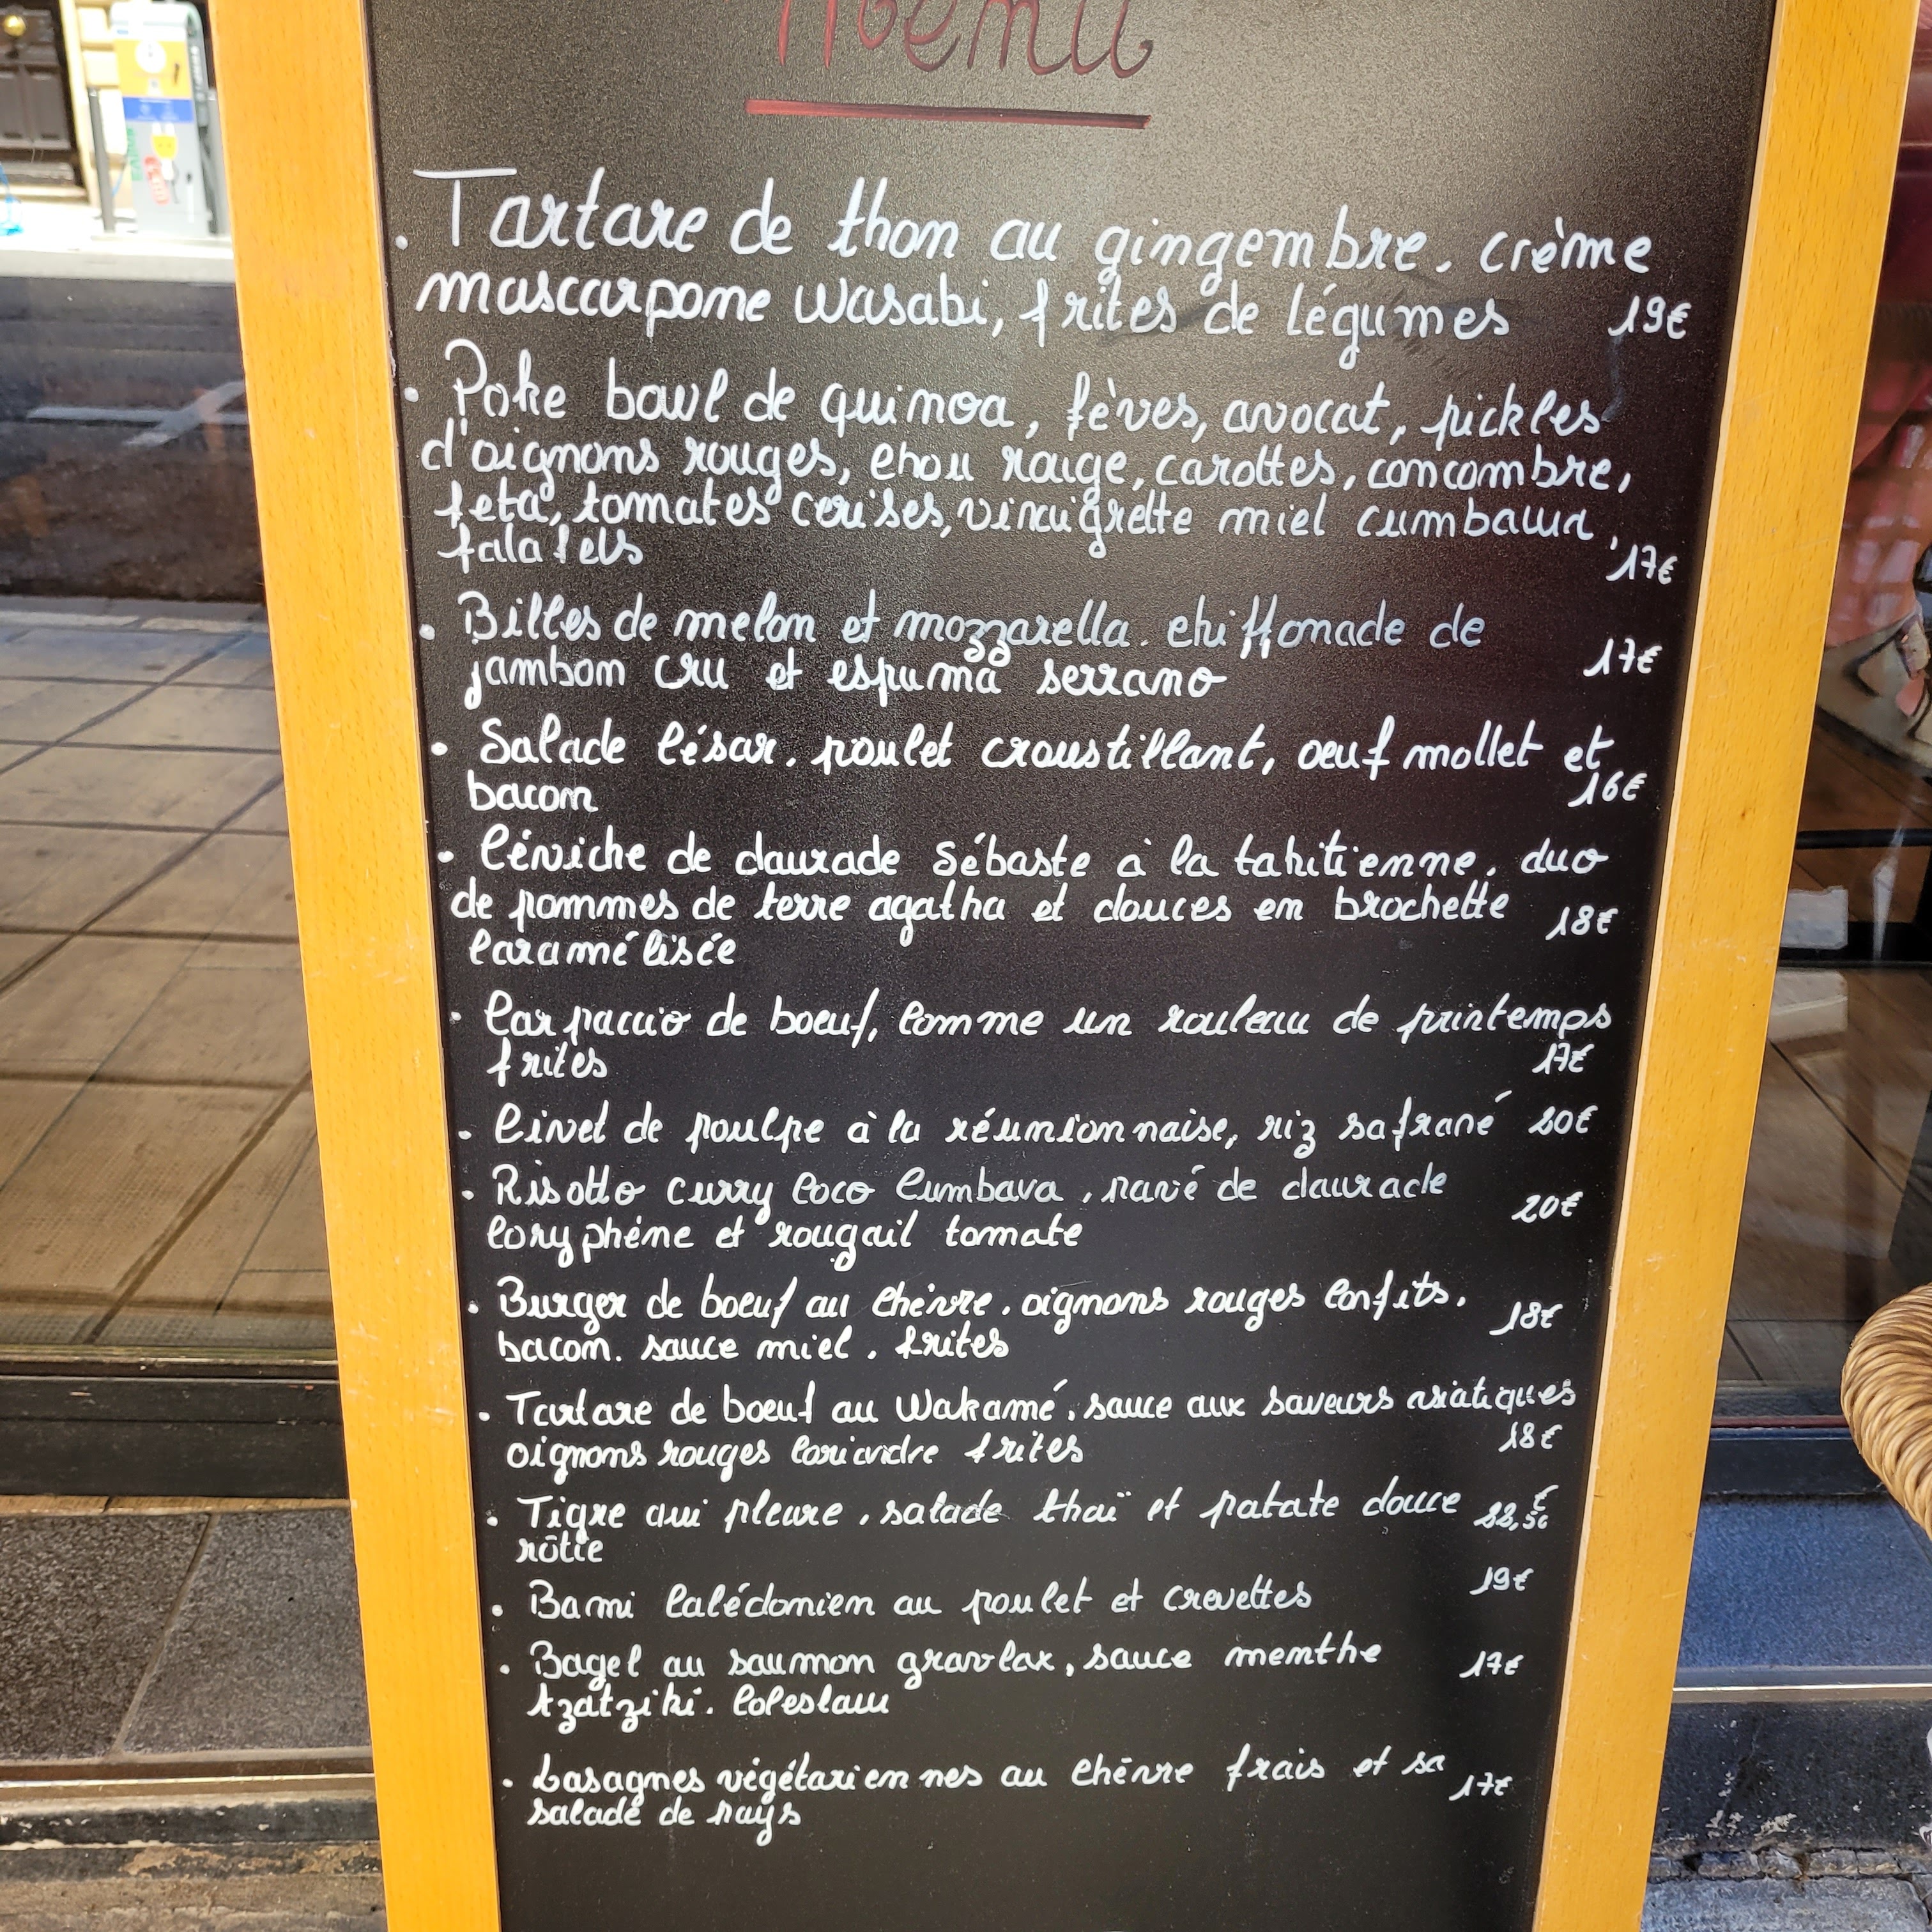 . Tartare de thon au gingembre. crème
mascarpone wasabi, frites de légumes 19€
. Poke bowl de quinoa, fèves, avocat, pickles
d'oignons rouges, chou rouge, carottes, concombre,
feta, tomates cerises, vinaigrette miel cumbawa,
falafels 17€
. Billes de melon et mozzarella. chiffonade de
jambon cru et espuma serrano 17€
. Salade César. poulet croustillant, oeuf mollet et
bacon 16€
. Céviche de daurade Sébaste à la tahitienne. duo
de pommes de terre agatha et douces en brochette 18€
Caramélisée
. Carpaccio de boeuf, Comme un rouleau de printemps
frites 17€
. Civet de poulpe à la réunionnaise, riz safrané 20€
. Risotto curry Coco Cumbava, pavé de daurade
Coryphéne et rougail tomate 20€
. Burger de boeuf au Chèvre. oignons rouges Confits.
bacon. sauce miel. frites 18€
. Tartare de boeuf au Wakamé. sauce aux saveurs asiatiques
oignons rouges Coriandre frites 18€
. Tigre qui pleure, salade thaï et patate douce 22,50€
rôtie
. Bami Calédonien au poulet et crevettes 19€
. Bagel au saumon gravlax, sauce menthe 17€
tzatziki. Coleslaw
. Lasagnes végétariennes au Chèvre frais et sa 17€
salade de pays